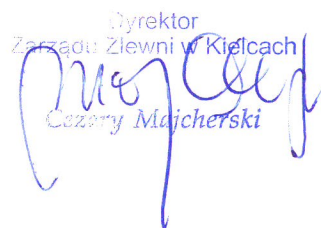 Dyrektor
Zarządu Zlewni w Kielcach
Cezary Majcherski